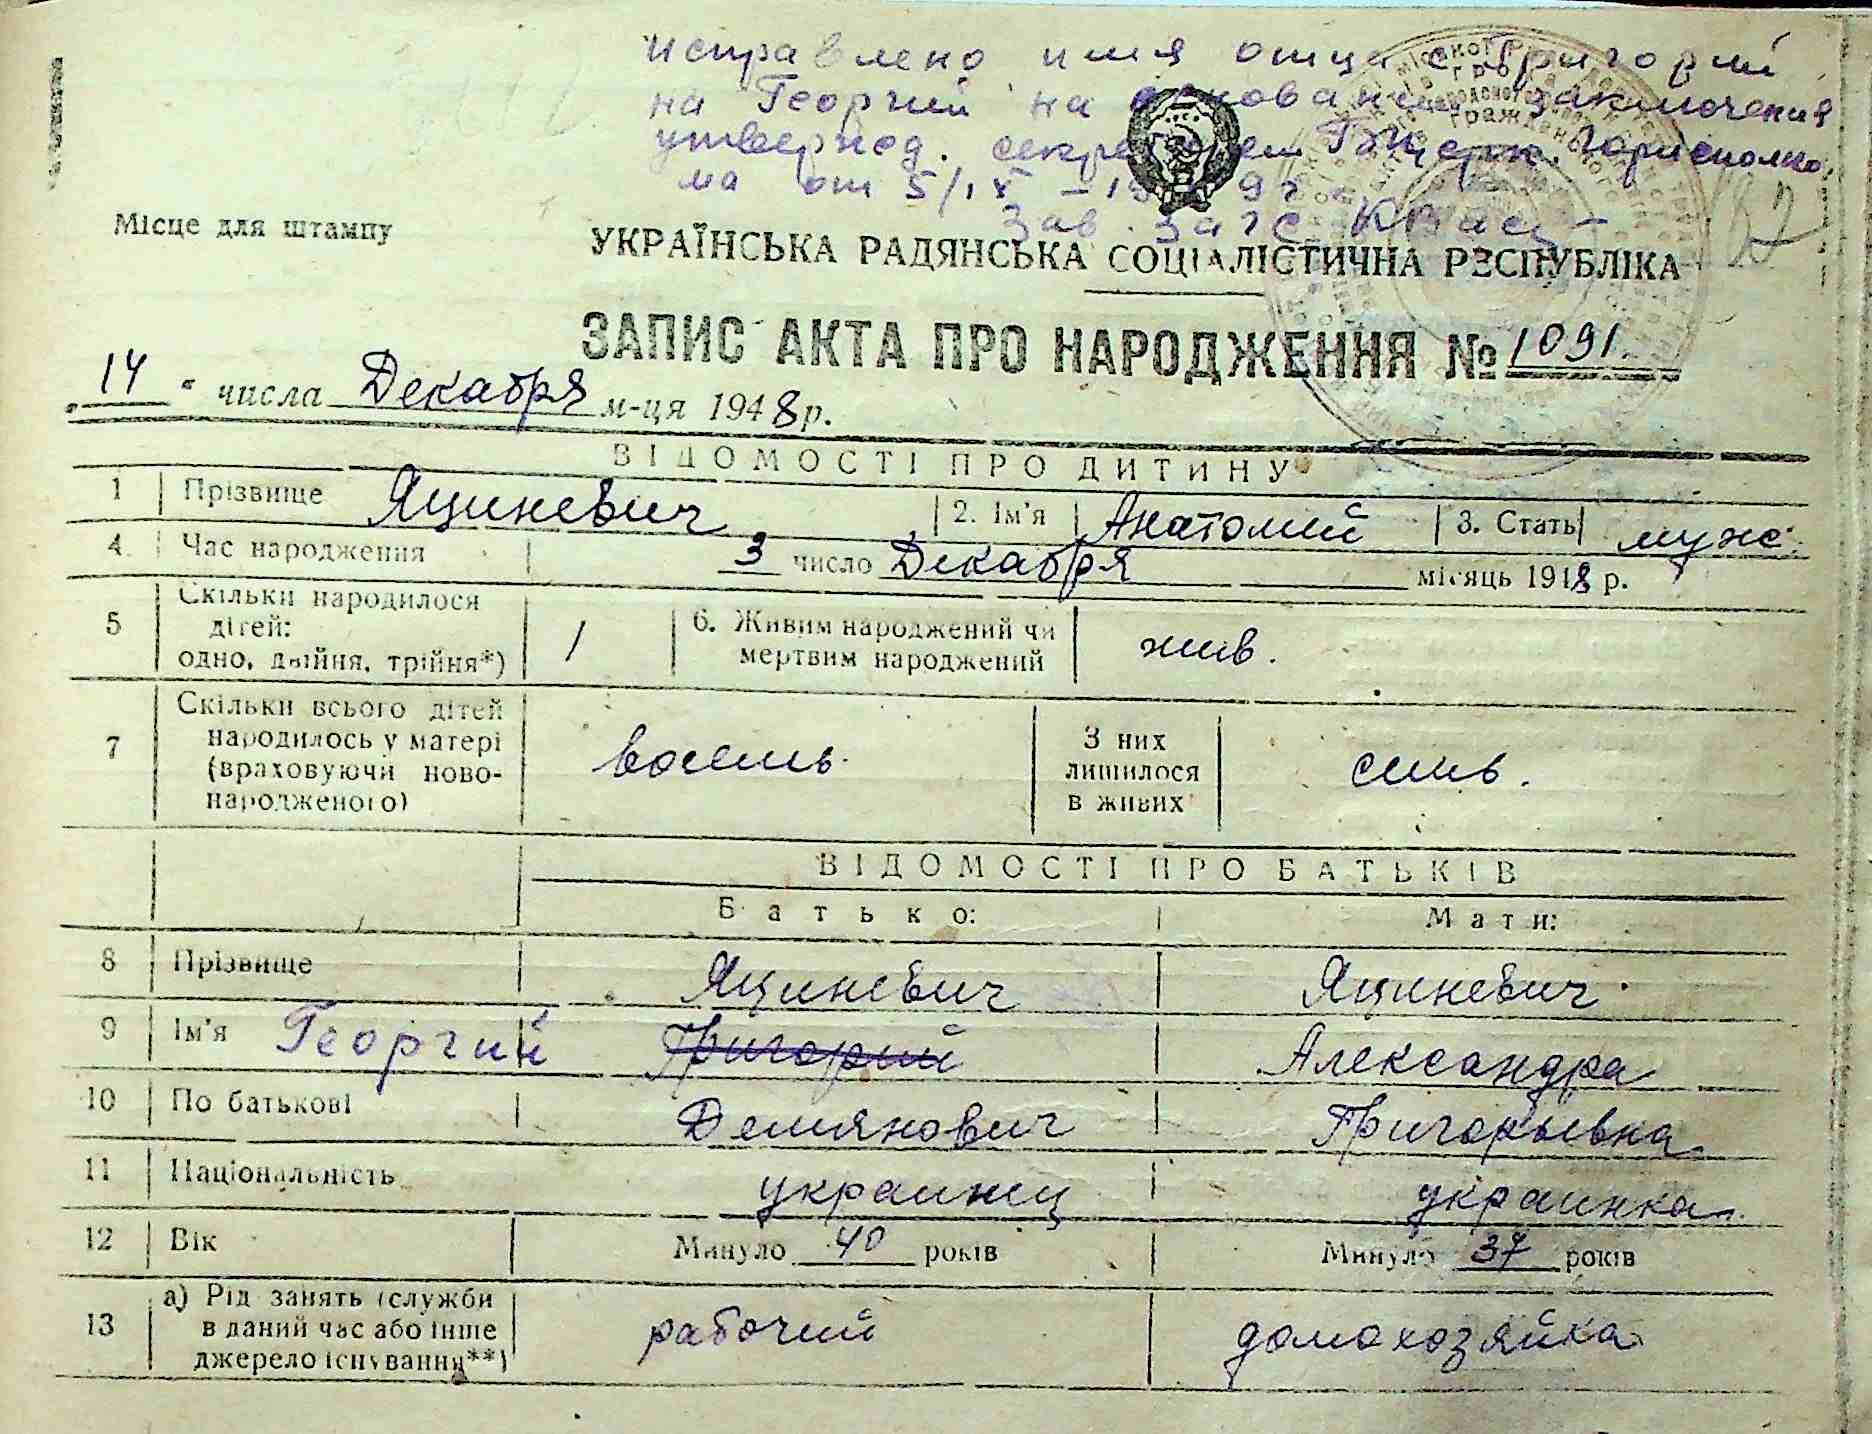 исправлено имя отца с Григорий
на Георгий на основании заключения
утвержд. секретарем Горисполко
ма от 5/IX - 19 9 г.
Зав. Загс
Місце для штампу
УКРАЇНСЬКА РАДЯНСЬКА СОЦІАЛІСТИЧНА РЕСПУБЛІКА
ЗАПИС АКТА ПРО НАРОДЖЕННЯ № 1091.
„14" числа Декабря м-ця 1948 р.
ВІДОМОСТІ ПРО ДИТИНУ
1 Прізвище Яциневич 2. Ім'я Анатолий 3. Стать муж.
4 Час народження 3 число Декабря місяць 1948 р.
5 Скільки народилося дітей: одно, двійня, трійня*) 1 6. Живим народжений чи мертвим народжений жив.
7 Скільки всього дітей народилось у матері (враховуючи новонародженого) восемь. З них лишилося в живих семь.
ВІДОМОСТІ ПРО БАТЬКІВ
Батько: Мати:
8 Прізвище Яциневич Яциневич.
9 Ім'я Георгий Григорий Александра
10 По батькові Демянович Григорьевна
11 Національність украинец украинка
12 Вік Минуло 40 років Минуло 37 років
13 а) Рід занять (служби в даний час або інше джерело існування**) рабочий домохозяйка